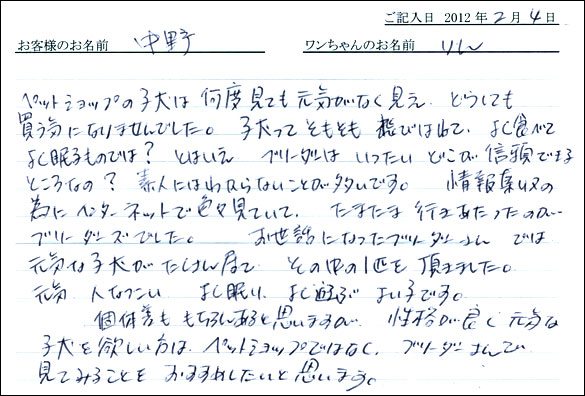 ご記入日 2012年2月4日
お客様のお名前 中野 ワンちゃんのお名前 りん
ペットショップの子犬は何度見ても元気がなく見え、どうしても
買う気になりませんでした。子犬ってそもそも 飛びはねて、よく食べて
よく眠るものでは？とはいえ ブリーダーは いったい どこが信頼できる
ところなの？素人にはわからないことが多いです。情報集収の
為にインターネットで色々見ていて、たまたま 行きあたったのが
ブリーダーズでした。お世話になったブリーダーさん では
元気な子犬がたくさん居て、その中の1匹を頂きました。
元気、人なつこい よく眠り、よく遊ぶ よい子です。
個体差も もちろんあると思いますが、性格が良く元気な
子犬を欲しい方は、ペットショップではなく、ブリーダーさんで
見てみることを おすすめしたいと思います。